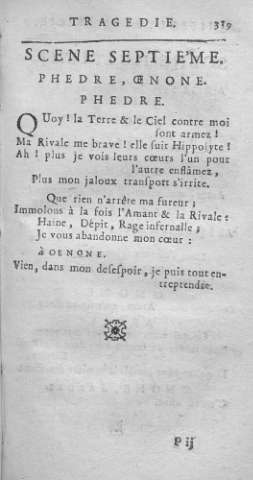 TRAGEDIE. 319
SCENE SEPTIE'ME.
PHEDRE, ŒNONE.
PHEDRE.
QUoy ! la Terre & le Ciel contre moi
sont armez !
Ma Rivale me brave ! elle suit Hippolyte !
Ah ! plus je vois leurs cœurs l'un pour
l'autre enflâmez,
Plus mon jaloux transport s'irrite.
Que rien n'arrête ma fureur ;
Immolons à la fois l'Amant & la Rivale :
Haine, Dépit, Rage infernalle ;
Je vous abandonne mon cœur :
à OENONE.
Vien, dans mon desespoir, je puis tout en-
treprendre.
P ij